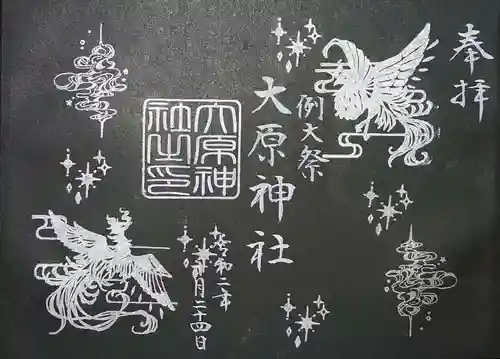 奉拝
例大祭
大原神社
大原神
社之印
令和二年
十月二十四日